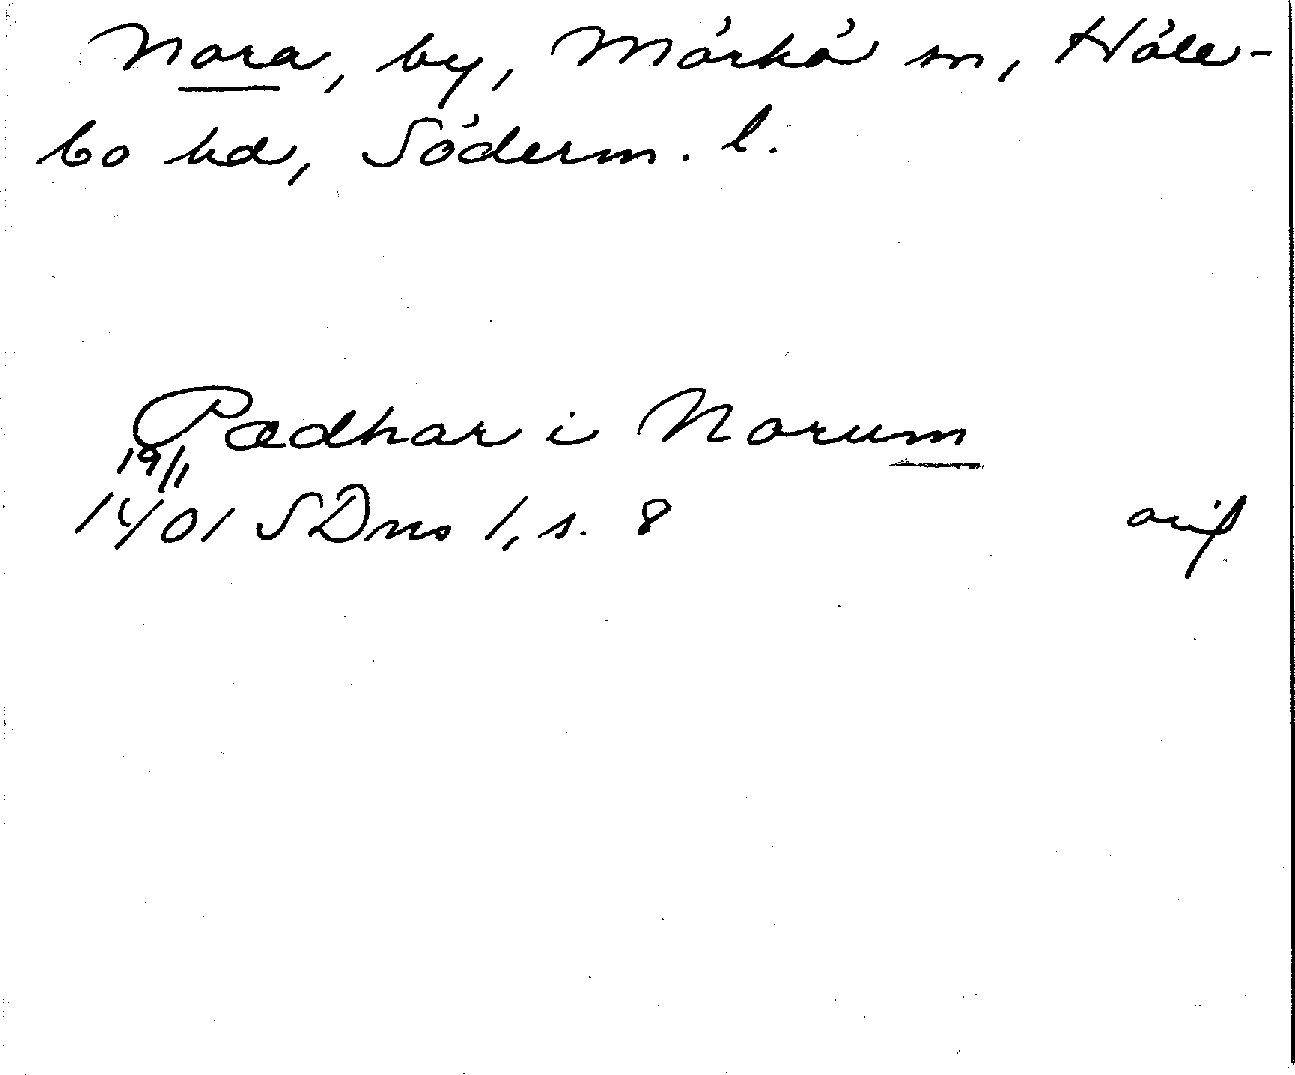 Nora, by, Mörkö sn, Höle-
bo hd, Söderm. l.
Pædhar i Norum
19/1
1401 SDns 1, s. 8 orig